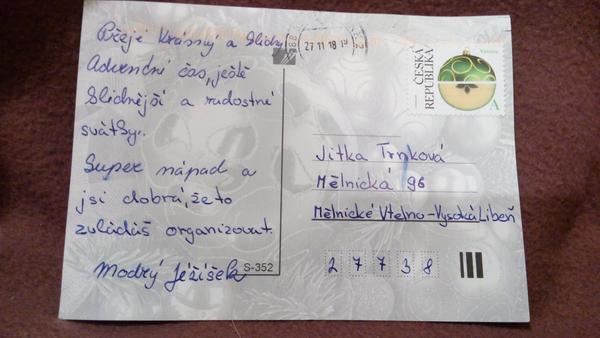 Přeji krásný a klidný
Adventní čas, ještě
klidnější a radostné
svátky..
Super nápad a
jsi dobrá, že to
zvládáš organizovat.
Modrý Ježíšek
S-352
27 11 18
ČESKÁ
REPUBLIKA
Vánoce
A
Jitka Trnková
Mělnická 96
Mělnické Vtelno-Vysoká Libeň
27738